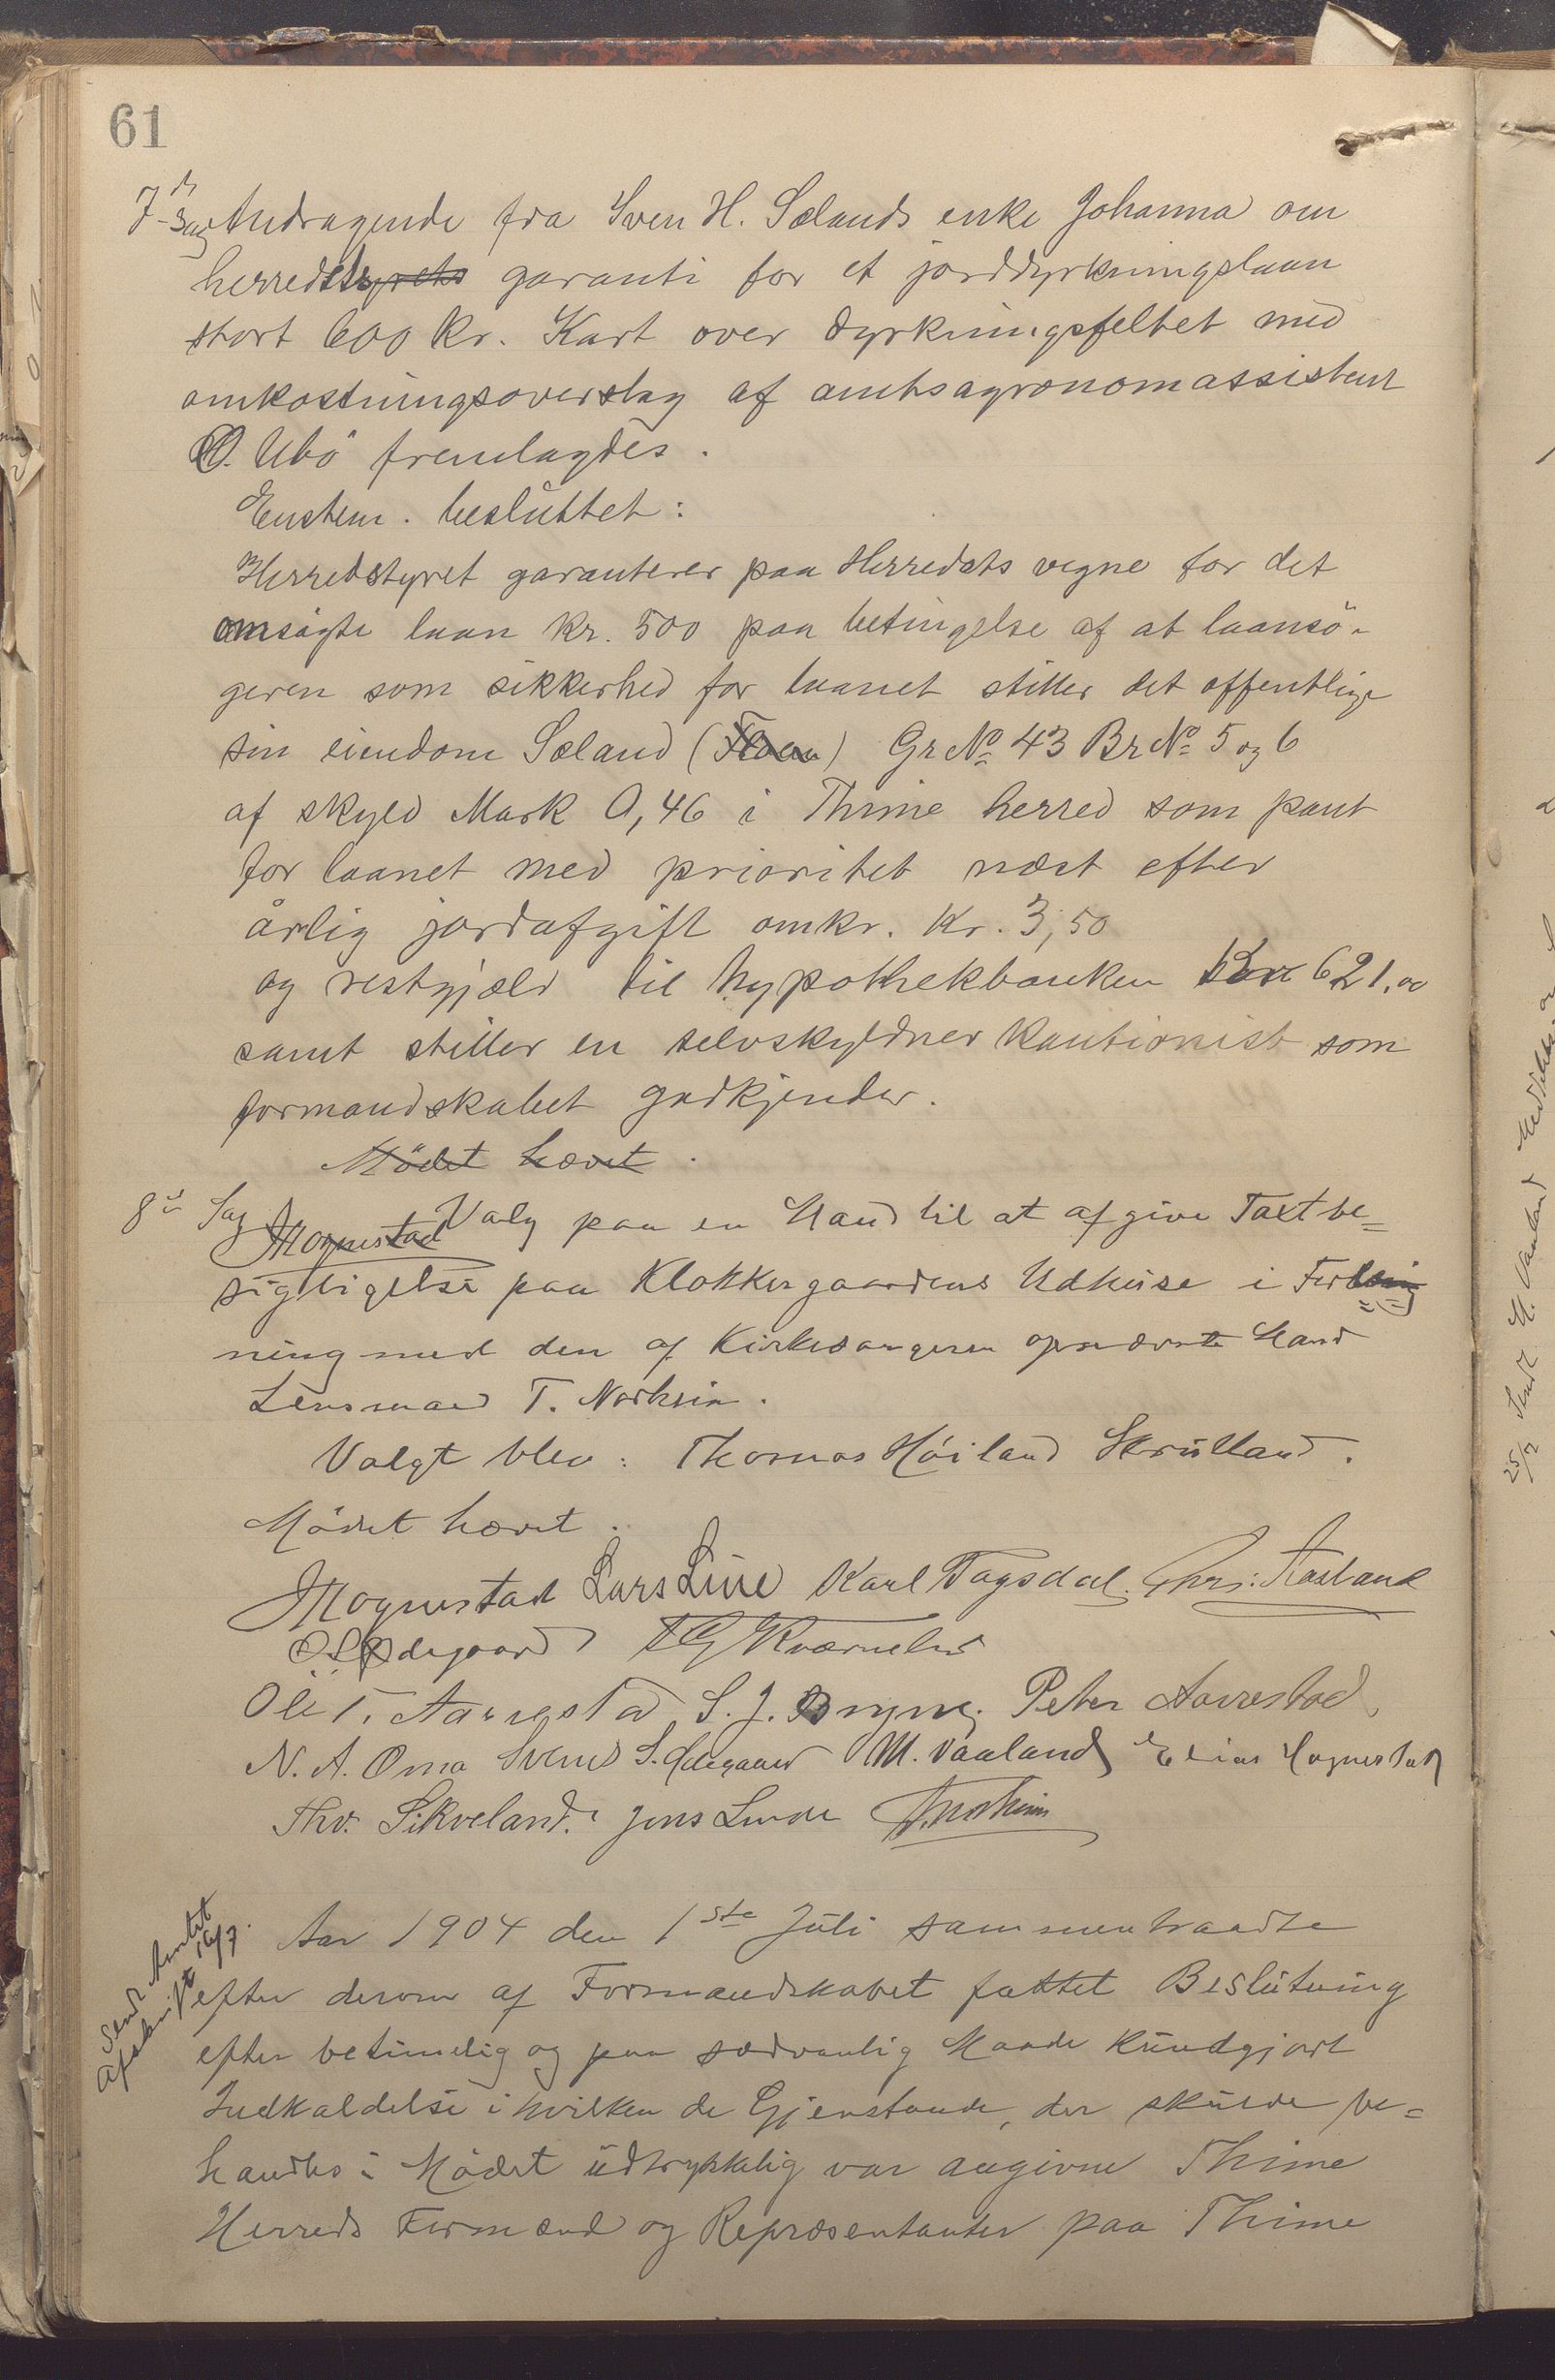 61
7de Sag Andragende fra Sven H. Sælands enke Johanna om
herredstyrets garanti for et jorddyrkningslaan
stort 600 kr. Kart over dyrkningsfeltet med
omkostningsoverslag af amtsagronomassistent
O. Ubö fremlagdes.
Enstem. besluttet:
Herredstyret garanterer paa Herredets vegne for det
omsøgte laan kr. 500 paa betingelse af at laansö-
geren som sikkerhed for laanet stiller det offentlige
sin eiendom Sæland () Gr No 43 Br No 5 og 6
af skyld Mark 0,46 i Thime herred som pant
for laanet med prioritet næst efter
årlig jordafgift omkr. Kr. 3,50
og restgjæld til hypothekbanken 621,00
samt stiller en selvskyldner kautionist som
formandskabet godkjender.
Mödet hævet.
8de Sag Mognestad Valg paa en Mand til at afgive Taxtbe=
sigtigelse paa Klokkergaardens Udhuse i For
ning med den af Kirkesangeren opnævnte Mand
Lensmand T. Norheim.
Valgt blev: Thomas Höiland Skrulland.
Mödet hævet.
Mognestad Lars Line Karl Tagsdal. Chr: Aasland
O. S. Ødegaard Kværneland
Ole T. Aarrestad S. J. Bryne. Peter Aarrestad
N. A. Oma Svend S. Ødegaard M. Vaaland Elias Mognestad
Thv. Sikveland. Jens Lunde T. Norheim
Send Amtet
Afskrift 16/7.
Aar 1904 den 1ste Juli sammentraadte
efter derom af Formandskabet fattet Beslutning
efter betimelig og paa sædvanlig Maade kundgjort
Indkaldelse i hvilken de Gjenstande, der skulde be=
handles i Mödet udtrykkelig var angivne Thime
Herreds Formænd og Repræsentanter paa Thime